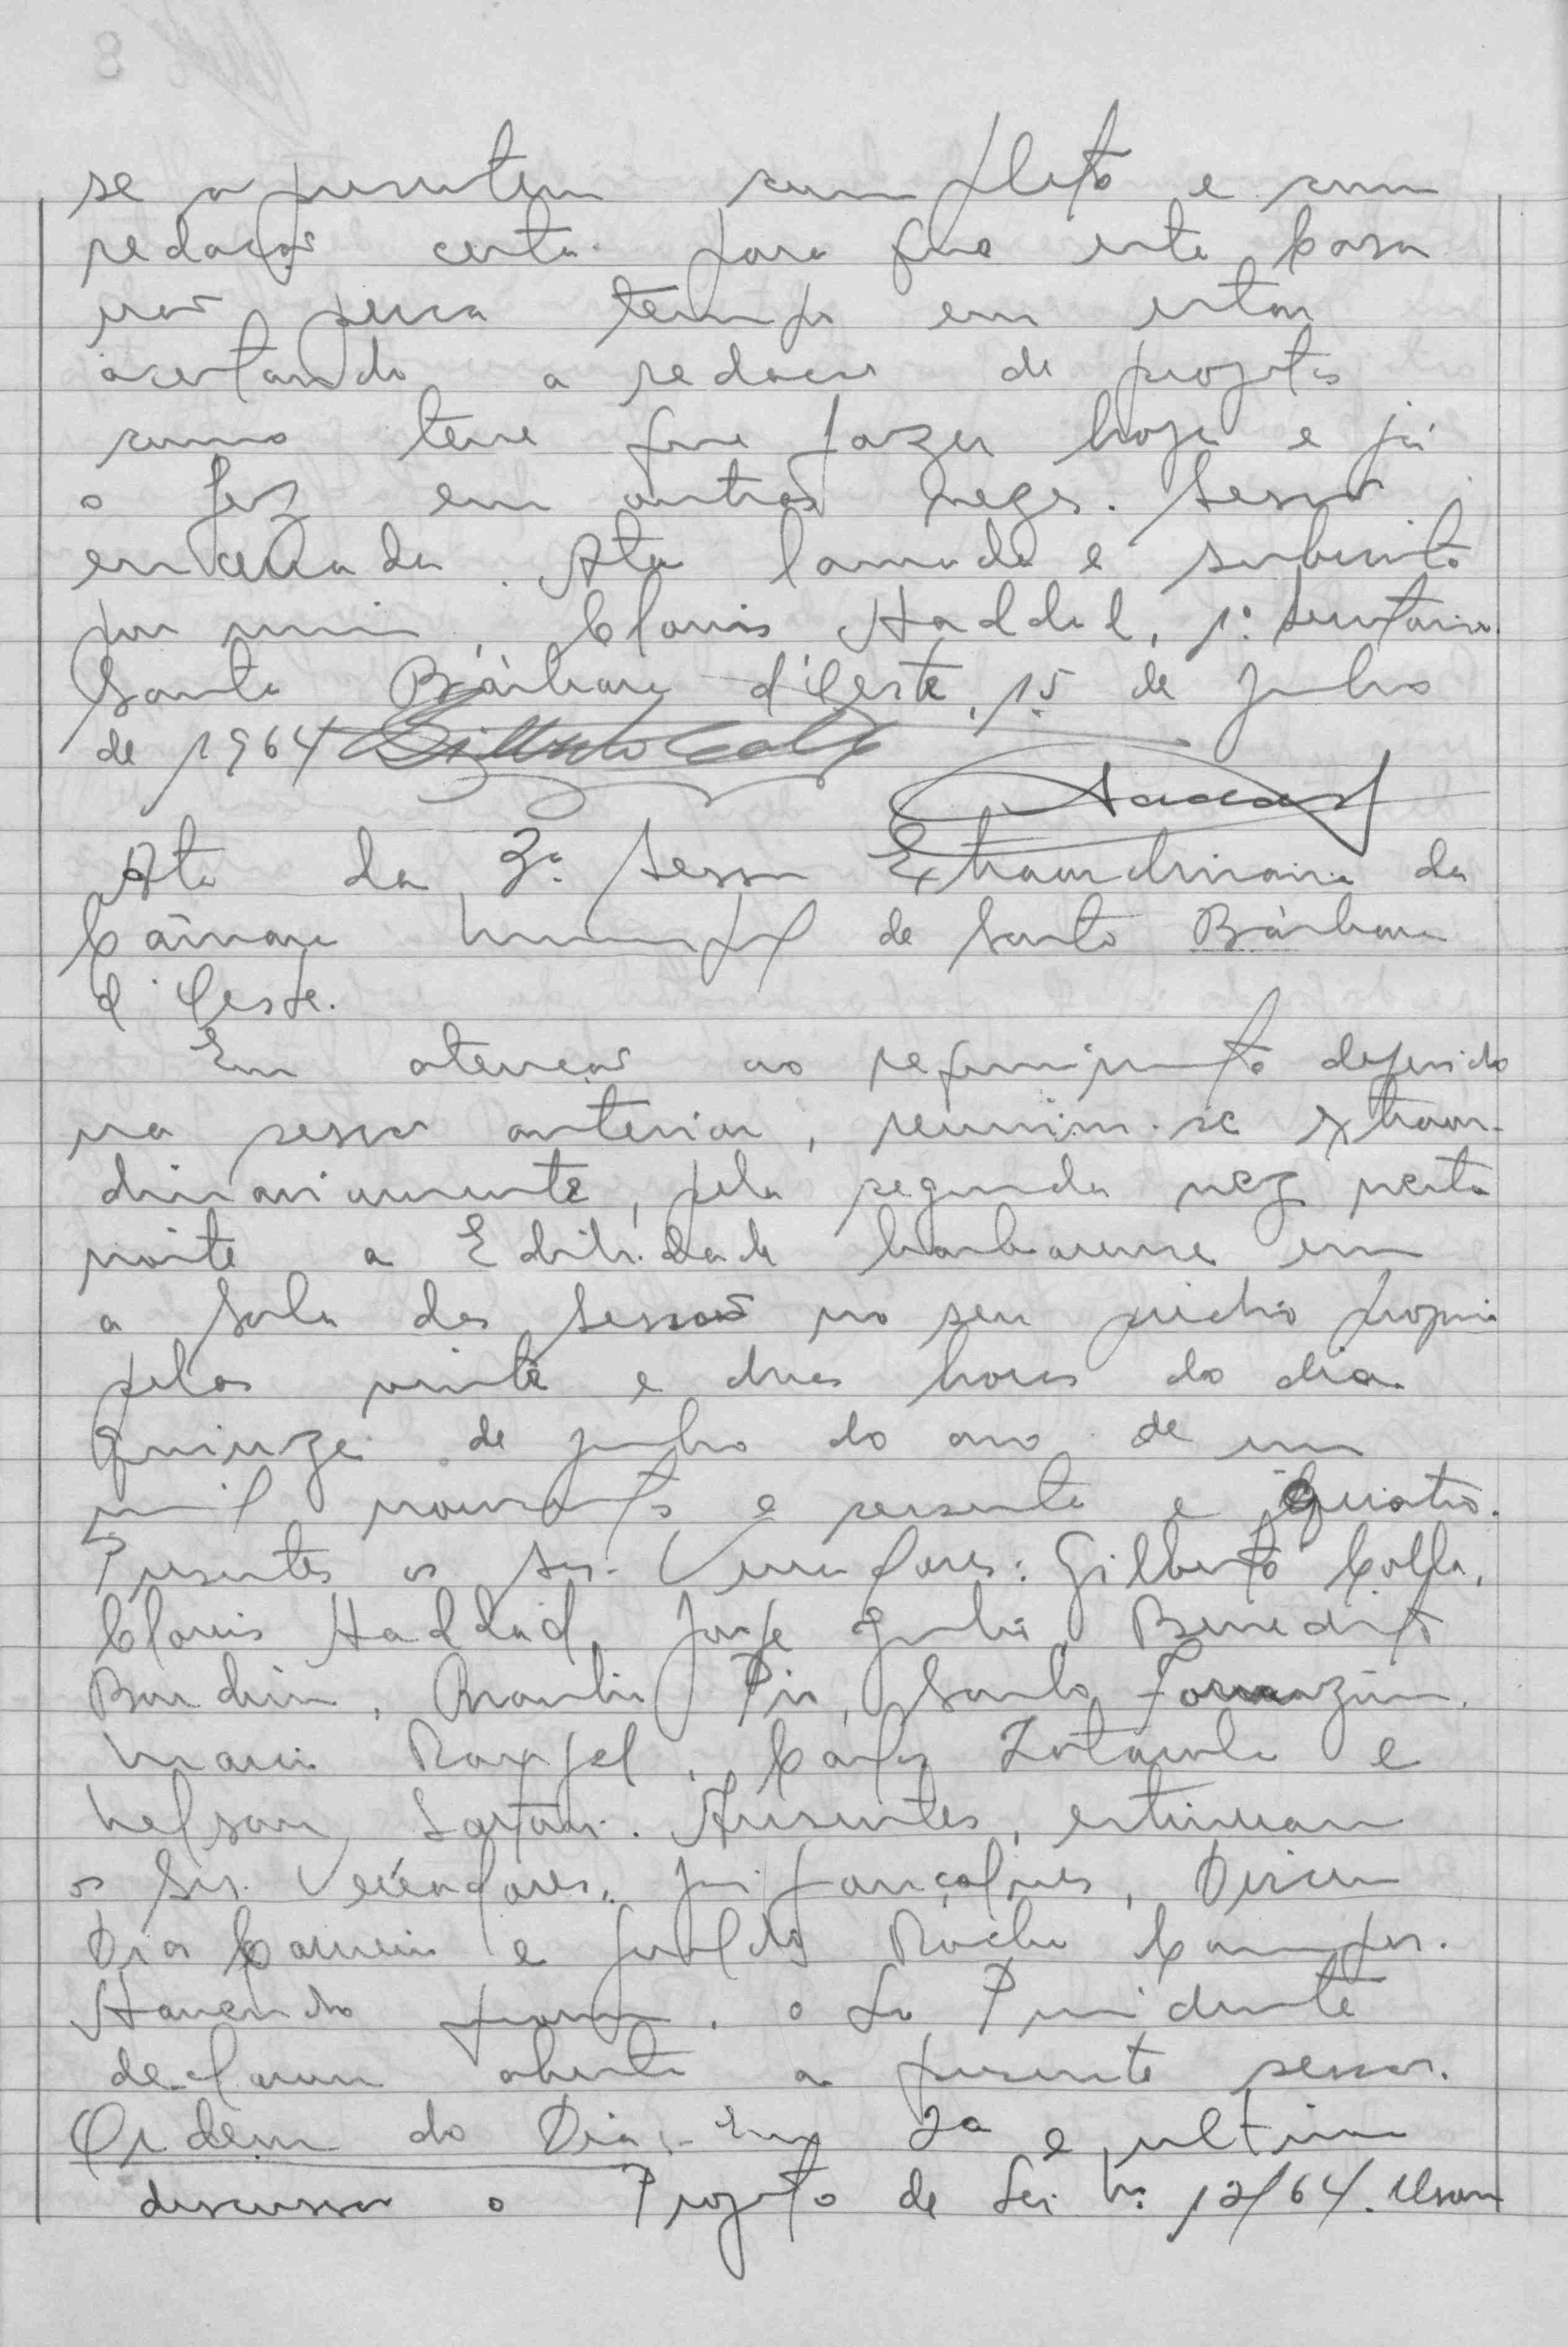 se apresentem completo e com
redação certa para que esta Casa
não perca tempo em estar
acertando a redação de projetos
como teve que fazer hoje e já
o fez em outras vezes. Sessão
encerrada. Ata lavrada e subscrita
por mim, Clovis Haddad, 1º Secretario.
Santa Bárbara d'Oeste, 15 de Julho
de 1964
Ata da 3ª Sessão Extraordinaria da
Câmara Municipal de Santa Bárbara
d'Oeste.
Em atenção ao requerimento deferido
na sessão anterior, reuniu-se extraor-
dinariamente, pela segunda vez nesta
noite a Edilidade barbarense em
a Sala das Sessões no seu predio proprio
pelas vinte e duas horas do dia
quinze de julho do ano de um
mil novecentos e sessenta e quatro.
Presentes os Srs. Vereadores: Gilberto Colla,
Clovis Haddad, Jorge Julio Benedito
Bandim, Braulio Pio, Santo Formazim,
Mario Raphael, Carlos e
Nelson. Ausentes, estiveram
os Srs. Vereadores, José Gonçalves, Dirceu
Dias Carneiro e Geraldo Rocha Campos.
Havendo quorum, o Sr. Presidente
declarou aberta a presente sessão.
Ordem do Dia - Em 2ª e ultima
discussão o Projeto de Lei Nº 12/64. Usou